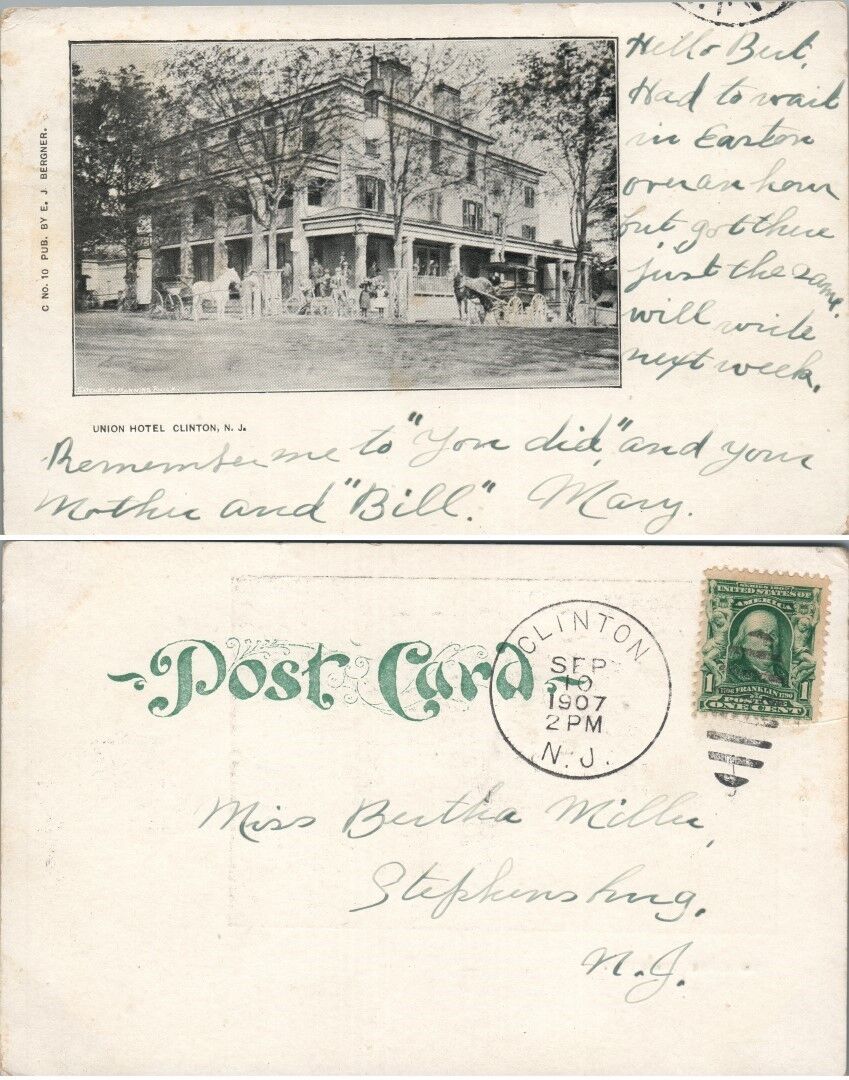 Hello Bert,
Had to wait
in Easton
over an hour
but got there
just the same.
will write
next week.
C No. 10 PUB. BY E. J BERGNER.
UNION HOTEL CLINTON, N. J.
Remember me to "You did," and your
Mother and "Bill." Mary.
Post Card
CLINTON
SEP
10
1907
2 PM
N.J.
SERIES 1902
UNITED STATES OF
AMERICA
1 1706 FRANKLIN 1790 1
POSTAGE
ONE CENT
Miss Bertha Miller,
Stephensburg,
N.J.